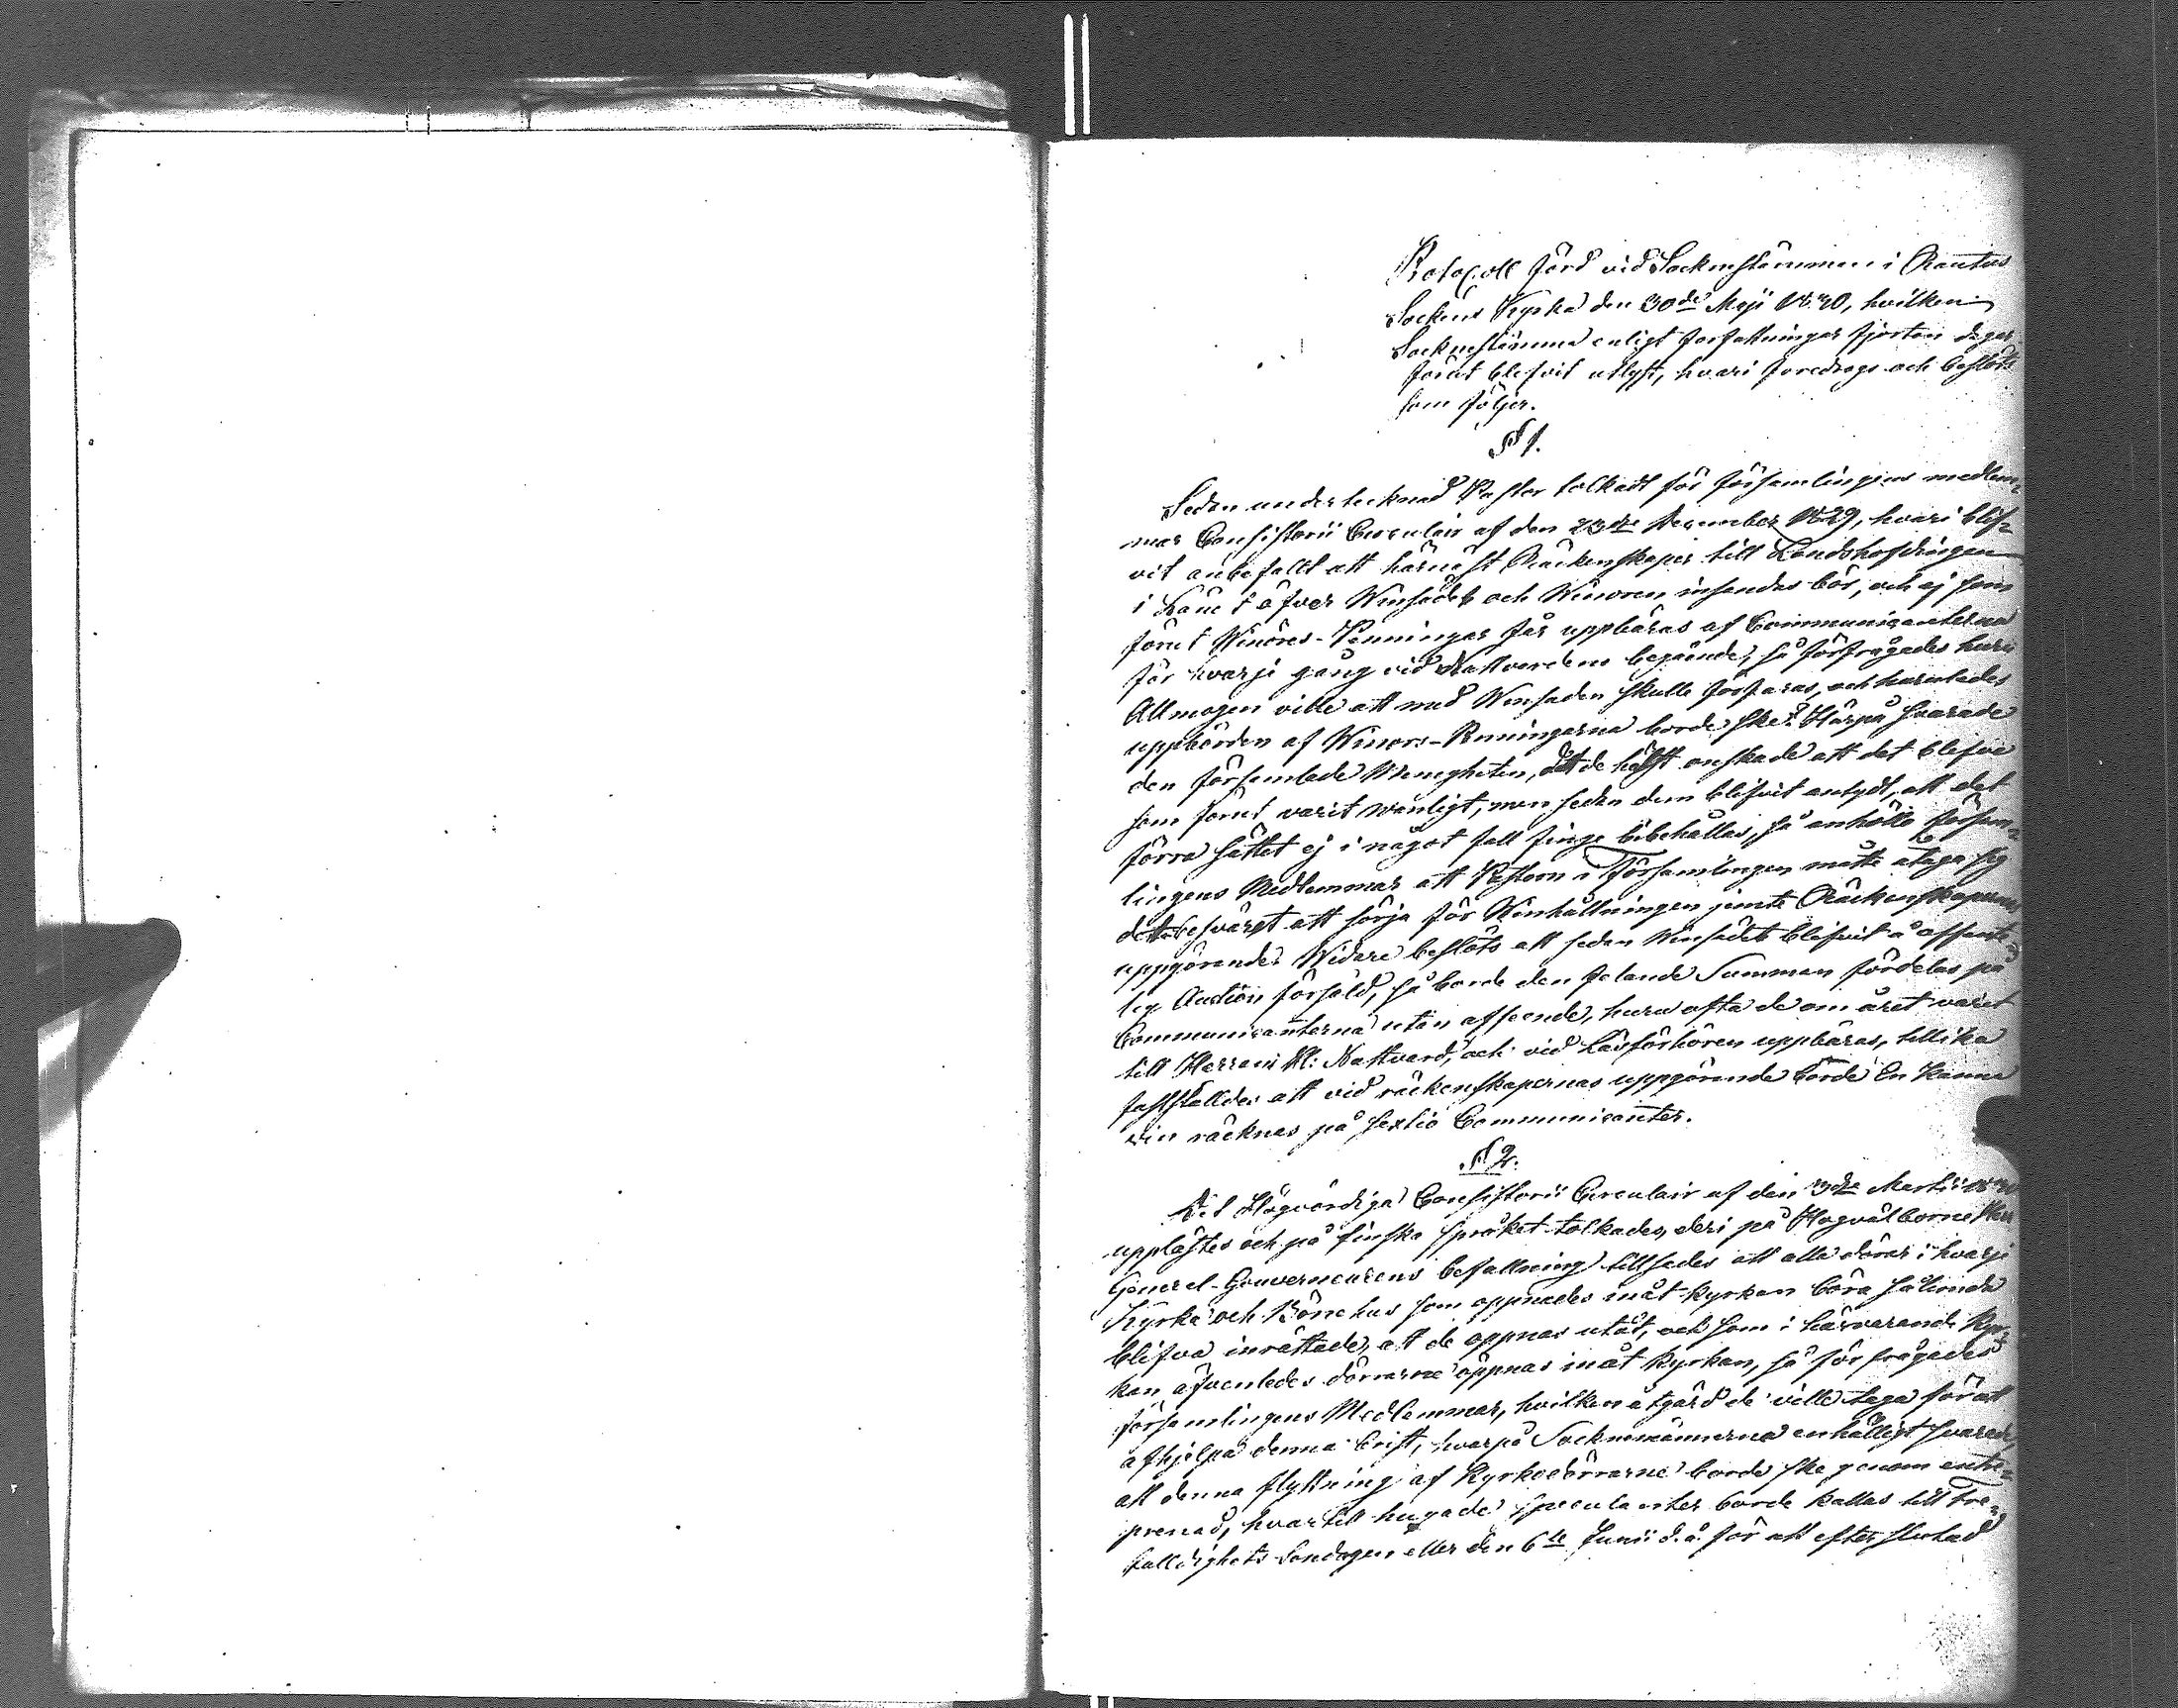 Protocoll förd vid Socknestämman i Rautus
Sockens Kyrka den 30de Maji 1830, hvilken
Socknestämma enligt författningar fjorton dagar
förut blifvit utlyst, hvari foredrogs och beslöts
som följer.
§ 1.
Sedan undertecknad Pastor tolkadt för församlingens medlem-
mar Consistorii Circulair af den 23dje December 1829, hvari blif-
vit anbefallt att härnäst Räckenskaper till Landshöfdingen
i Länet öfver Winsädet och Winören insändas bör, och ej som
förut Winöres-Penningar får uppbäras af Communicanterna
för hvarje gång vid Nattvardens begående, så förfrågades huru
Allmogen ville att med Winsäden skulle förfaras, och huruledes
uppbörden af Winörs-Penningarna borde ske? Härpå svarade
den församlade Menigheten, att de hälst onskade att det blefve
som förut varit wanligt, men sedan dem blifvit antydt, att det
förra sättet ej i något fall finge bibehållas, så anhöllo försam-
lingens Medlemmar att Pastorn i Församlingen måtte åtaga sig
det besväret att sörja för Winhållningen jemte Räckenskapernas
uppgörande. Widare beslöts att sedan Winsädet blifvit å offent-
lig Auction försåld, så borde den felande Summan fördelas på
Communicanterna utan afseende, huru ofta de om året varit
till Herrans Hl: Nattvard, och vid Läsförhören uppbäras, tillika
fastställdes att vid räckenskapernas uppgörande borde En Kanna
vin räcknas på sextio Communicanter.
§ 2.
Det Högvördiga Consistorii Circulair af den 3dje Martii 1830
upplästes och på finska språket tolkades, deri på Högvälborne Herr
General-Gouverneurens befallning tillsades att alla dörar i hvarje
Kyrka och Bönehus som öppnades inåt kyrkan böra sålunda
blifva inrättade, att de öppnas utåt, och som i härvarande Kyr-
kan äfvenledes dörrarne öppnas inåt kyrkan, så förfrågades
församlingens Medlemmar, hvilken åtgärd de ville taga för att
afhjelpa denna brist, hvarpå Socknemännerna enhälligt svarade,
att denna flyttning af Kyrkodörrarne borde ske genom entre-
prenad, hvartill hugade speculanter borde kallas till Tre-
falldighets Söndagen eller den 6te Junii d. å. för att efter slutad